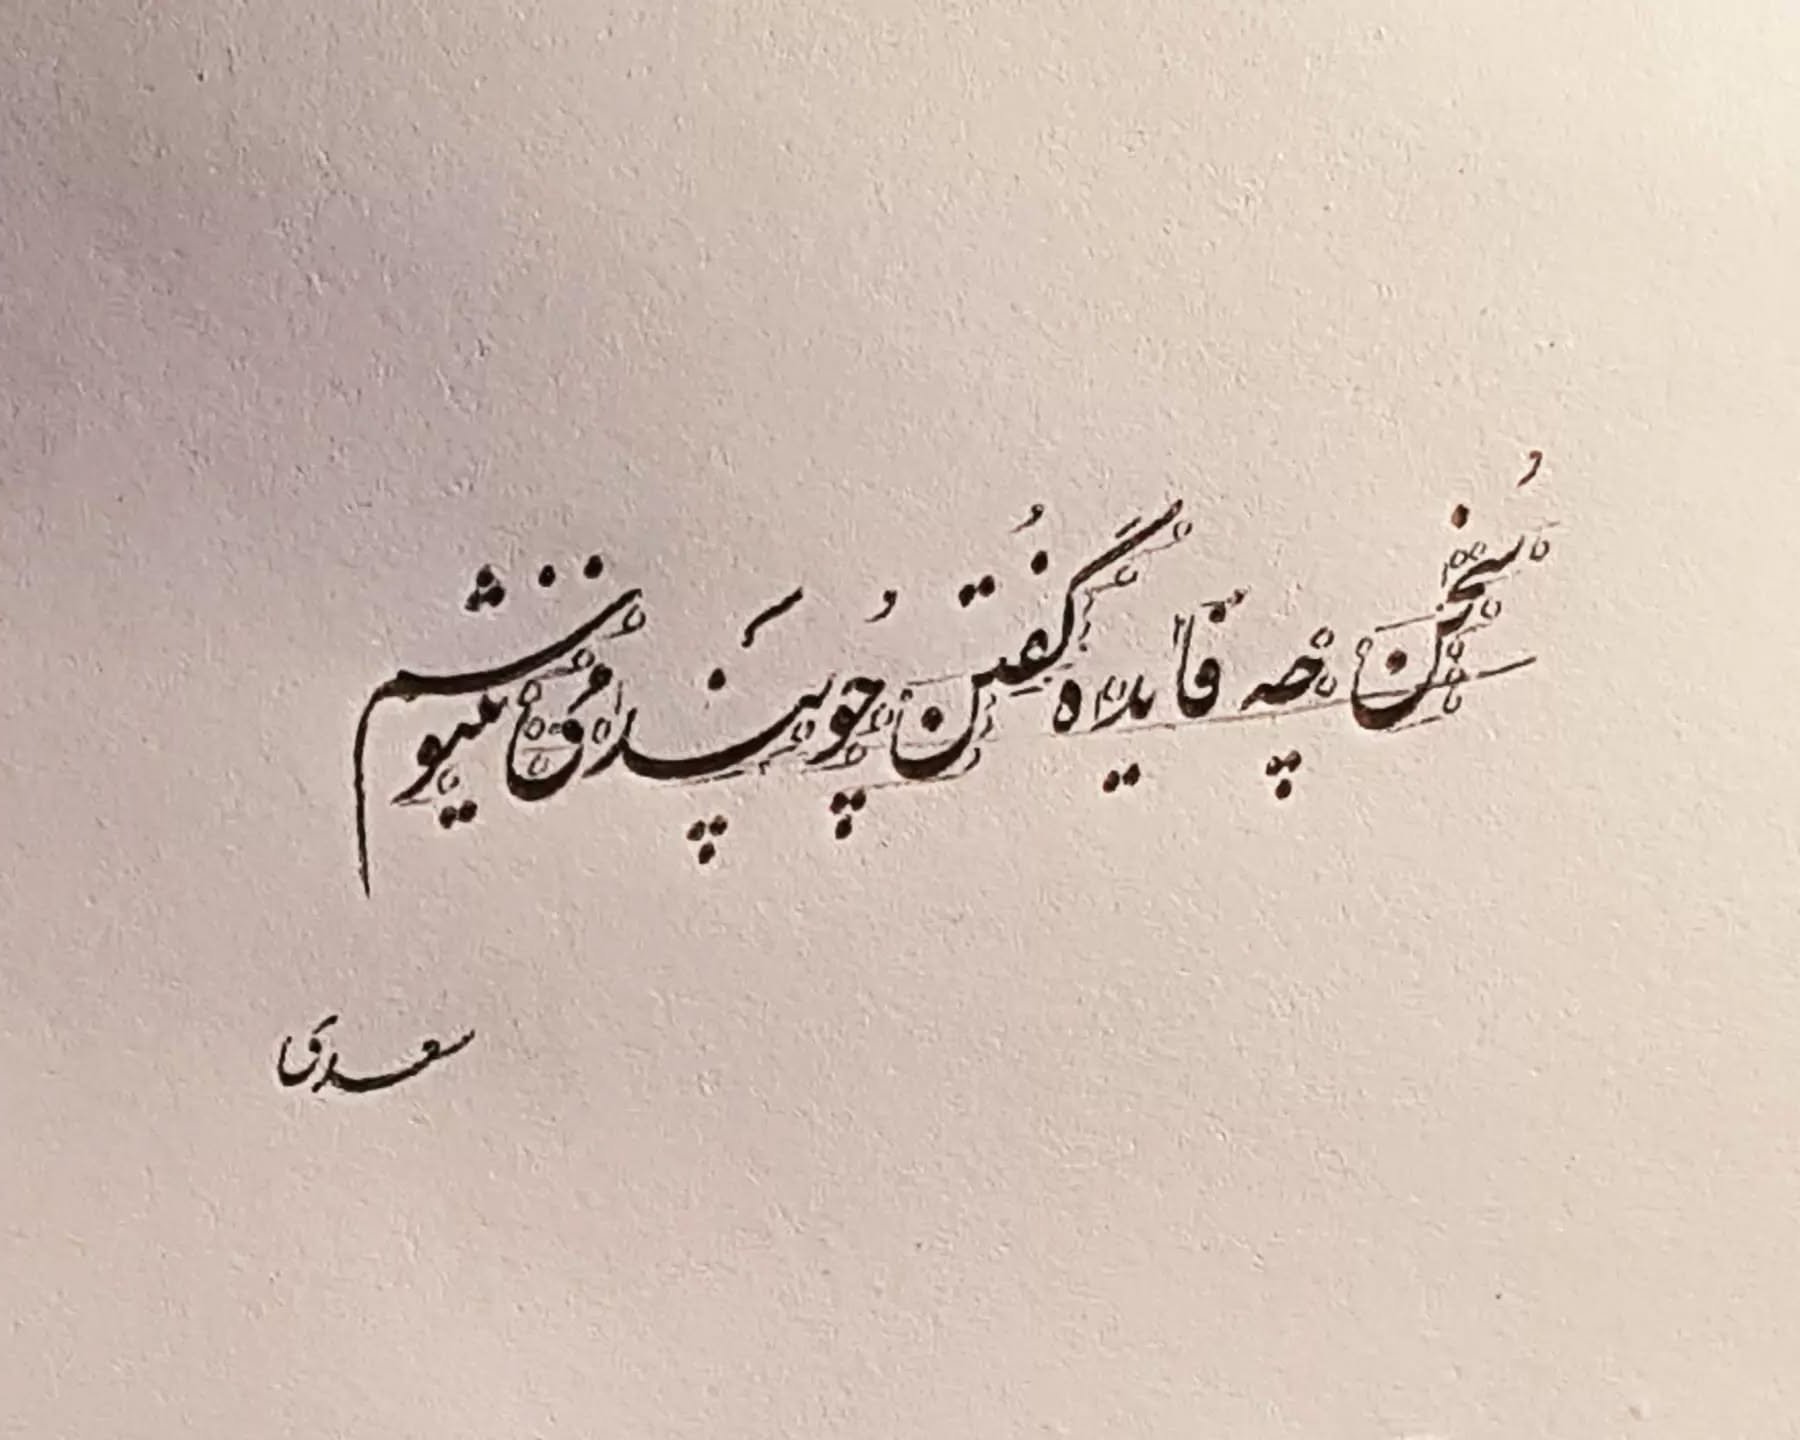 سُخن چه فایده گفتن چو پَند می‌ننیوشم
سعدی